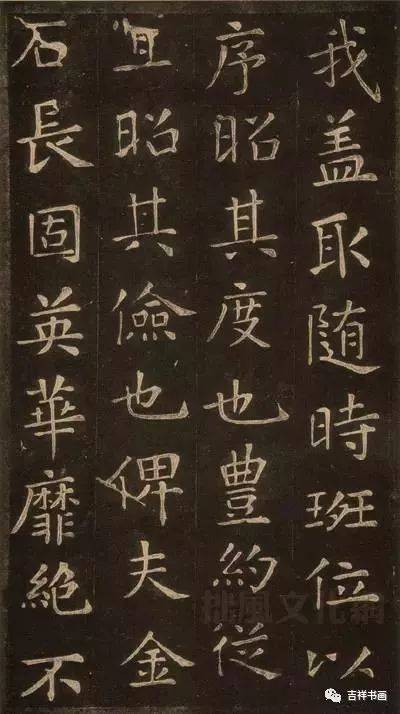 我盖取随時班位以
序昭其度也豊約従
宜昭其儉也俾夫金
石長固英華靡絶不
吉祥书画